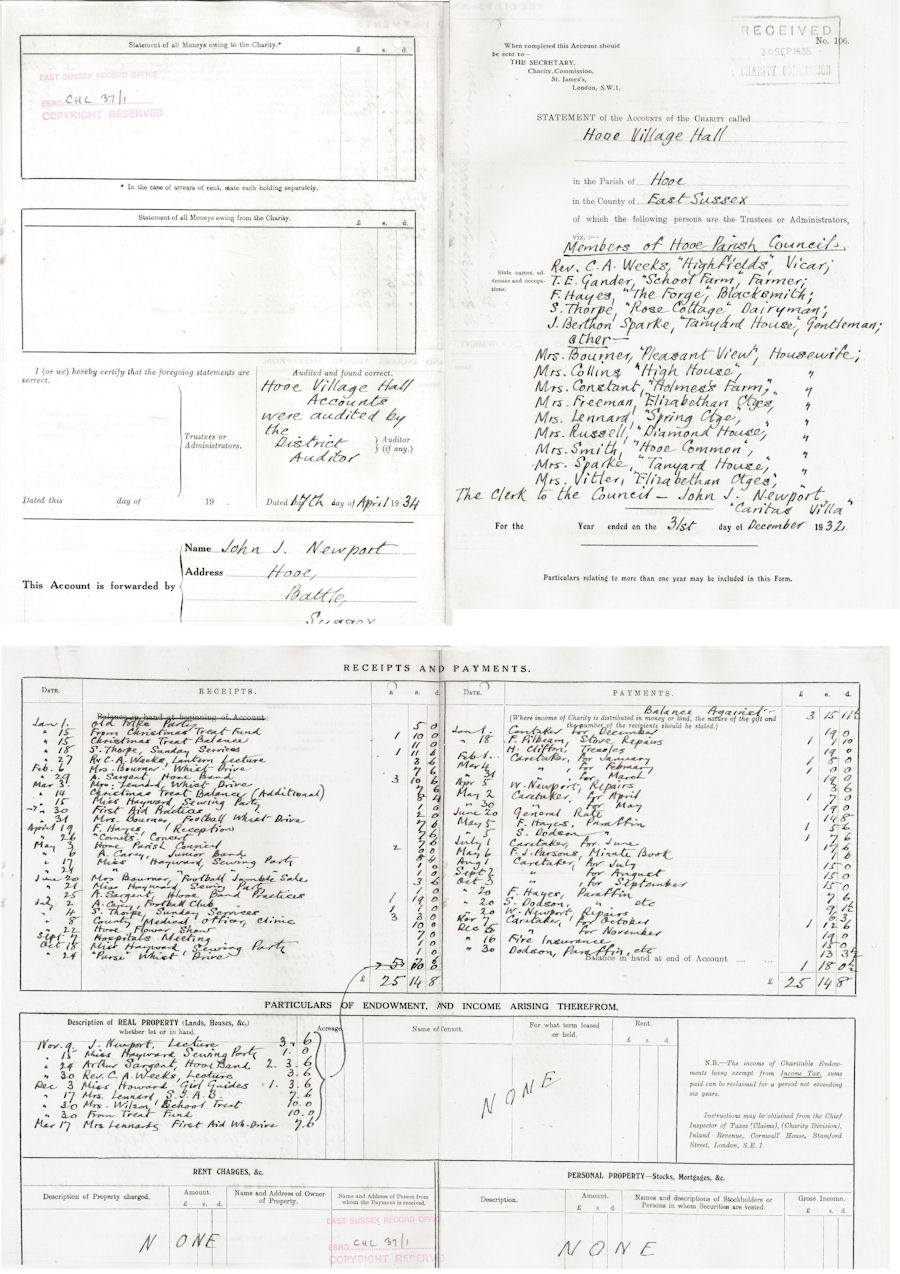 Statement of all Moneys owing to the Charity.*
£ s. d.
EAST SUSSEX RECORD OFFICE
ESRO CHC 37/1
COPYRIGHT RESERVED
* In the case of arrears of rent, state each holding separately.
Statement of all Moneys owing from the Charity.
£ s. d.
I (or we) hereby certify that the foregoing statements are correct.
Trustees or Administrators.
Dated this day of 19 .
Audited and found correct.
Hooe Village Hall
Accounts
were audited by
the
District
Auditor
Auditor (if any.)
Dated 17th day of April 1934
This Account is forwarded by
Name John J. Newport
Address Hooe,
Battle,
Sussex
RECEIVED
30 SEP 1935
CHARITY COMMISSION
No. 106.
When completed this Account should
be sent to—
THE SECRETARY,
Charity Commission,
St. James's,
London, S.W.1.
STATEMENT of the Accounts of the CHARITY called
Hooe Village Hall
in the Parish of Hooe
in the County of East Sussex
of which the following persons are the Trustees or Administrators,
viz. :—
State names, addresses and occupations.
Members of Hooe Parish Council.
Rev. C.A. Weeks, "Highfields", Vicar;
T.E. Gander, "School Farm", Farmer;
F. Hayes, "The Forge", Blacksmith;
S. Thorpe, "Rose Cottage" Dairyman;
J. Berthon Sparke, "Tanyard House", Gentleman;
other—
Mrs. Bourner, "Pleasant View", Housewife;
Mrs. Collins "High House", "
Mrs. Constant, "Holmes's Farm", "
Mrs. Freeman, "Elizabethan Ctges, "
Mrs. Lennard, "Spring Ctge", "
Mrs. Russell, "Diamond House", "
Mrs. Smith, "Hooe Common", "
Mrs. Sparke, "Tanyard House", "
Mrs. Vitler, "Elizabethan Ctges", "
The Clerk to the Council — John J. Newport,
"Caritas Villa"
For the Year ended on the 31st day of December 1932
Particulars relating to more than one year may be included in this Form.
RECEIPTS AND PAYMENTS.
DATE. RECEIPTS. £ s. d.
Balance in hand at beginning of Account:
Jan 1. Old Folks Party 5 0
" 15 From Christmas Treat Fund
" 15 Christmas Treat Balance
" 18 S. Thorpe, Sunday Services
" 27 Rev C.A. Weeks, Lantern Lecture
Feb. 6 Mrs. Bourner Whist Drive
" 29 A. Sargent, Hooe Band
Mar 3 Mrs. Lennard, Whist Drive
" 14 Christmas Treat Balance (Additional)
" 15 Miss Hayward, Sewing Party
" 30 First Aid Practices
" 31 Mrs. Bourner, Football Whist Drive
April 19 F. Hayes, (Reception
" 26 "Comets" Concert
May 3 Hooe Parish Council
" 6 A. Carey, Junior Band
" 17 Miss Hayward, Sewing Party
June 20 Mrs Bourner, "Football Jumble" Sale
" 21 Miss Hayward, Sewing Party
" 25 A. Sargent, Hooe Band Practices
July 2 A. Carey, Football Club
" 4 S. Thorpe Sunday Services
" 8 County Medical Officer, Clinic
" 22 Hooe Flower Show
Sept 7 Hospitals Meeting
Oct 18 Miss Hayward, Sewing Party
" 24 "Purse" Whist Drive
£ 25 14 8
DATE. PAYMENTS. £ s. d.
Balance Against 3 15 11½
(Where income of Charity is distributed in money or kind, the nature of the gift and
the number of the recipients should be stated.)
Jan 1 Caretaker for December 19 0
" 18 F. Filbeam, Stove Repairs
H. Clifton, Trestles
Feb 1. Caretaker, for January
Mar 4 " for February
" 31 " for March
Apr 5 W. Newport, Repairs 3 6
May 2 Caretaker, for April
" 30 " for May
June 20 General Rate
May 5 F. Hayes, Paraffin
" 5 S. Dodson "
July 1 Caretaker, for June
May 6 F.J. Parsons, Minute Book
Aug 1 Caretaker, for July 15 0
Sept 2 " for August 15 0
Oct 3 " , for September 15 0
" 20 F. Hayes, Paraffin
" 20 S. Dodson, " etc
" 20 W. Newport, Repairs
Nov 7 Caretaker, for October
Dec 5 " for November
" 16 Fire Insurance
" 30 Dodson, Paraffin, etc 13 3½
Balance in hand at end of Account ... ... 1 18 0½
£ 25 14 8
PARTICULARS OF ENDOWMENT, AND INCOME ARISING THEREFROM.
Description of REAL PROPERTY (Lands, Houses, &c.)
whether let or in hand.
Acreage.
Name of Tenant.
For what term leased or held.
Rent.
£ s. d.
Nov. 9. J. Newport, Lecture 3. 6
" 15 Miss Hayward Sewing Party 1. 0
" 29 Arthur Sargent, Hooe Band 2. 3. 6
" 30 Rev. C.A. Weeks, Lecture 3. 6
Dec 3 Miss Howard Girl Guides 1. 3. 6
" 17 Mrs. Lennard, S.J.A.B. 7. 6
" 30 Mrs. Wilson School Treat 10. 0
" 30 From Treat Fund 10. 0
Mar 17 Mrs Lennards First Aid Wh-Drive 7. 6
NONE
N.B.—The income of Charitable Endowments being exempt from Income Tax, sums paid can be reclaimed for a period not exceeding six years.
Instructions may be obtained from the Chief Inspector of Taxes (Claims), (Charity Division), Inland Revenue, Cornwall House, Stamford Street, London, S.E.1.
RENT CHARGES, &c.
Description of Property charged.
Amount.
£ s. d.
Name and Address of Owner of Property.
Name and Address of Person from whom the Payment is received.
NONE
EAST SUSSEX RECORD OFFICE
ESRO CHC 37/1
COPYRIGHT RESERVED
PERSONAL PROPERTY—Stocks, Mortgages, &c.
Description.
Amount.
£ s. d.
Names and descriptions of Stockholders or Persons in whom Securities are vested.
Gross Income.
£ s. d.
NONE